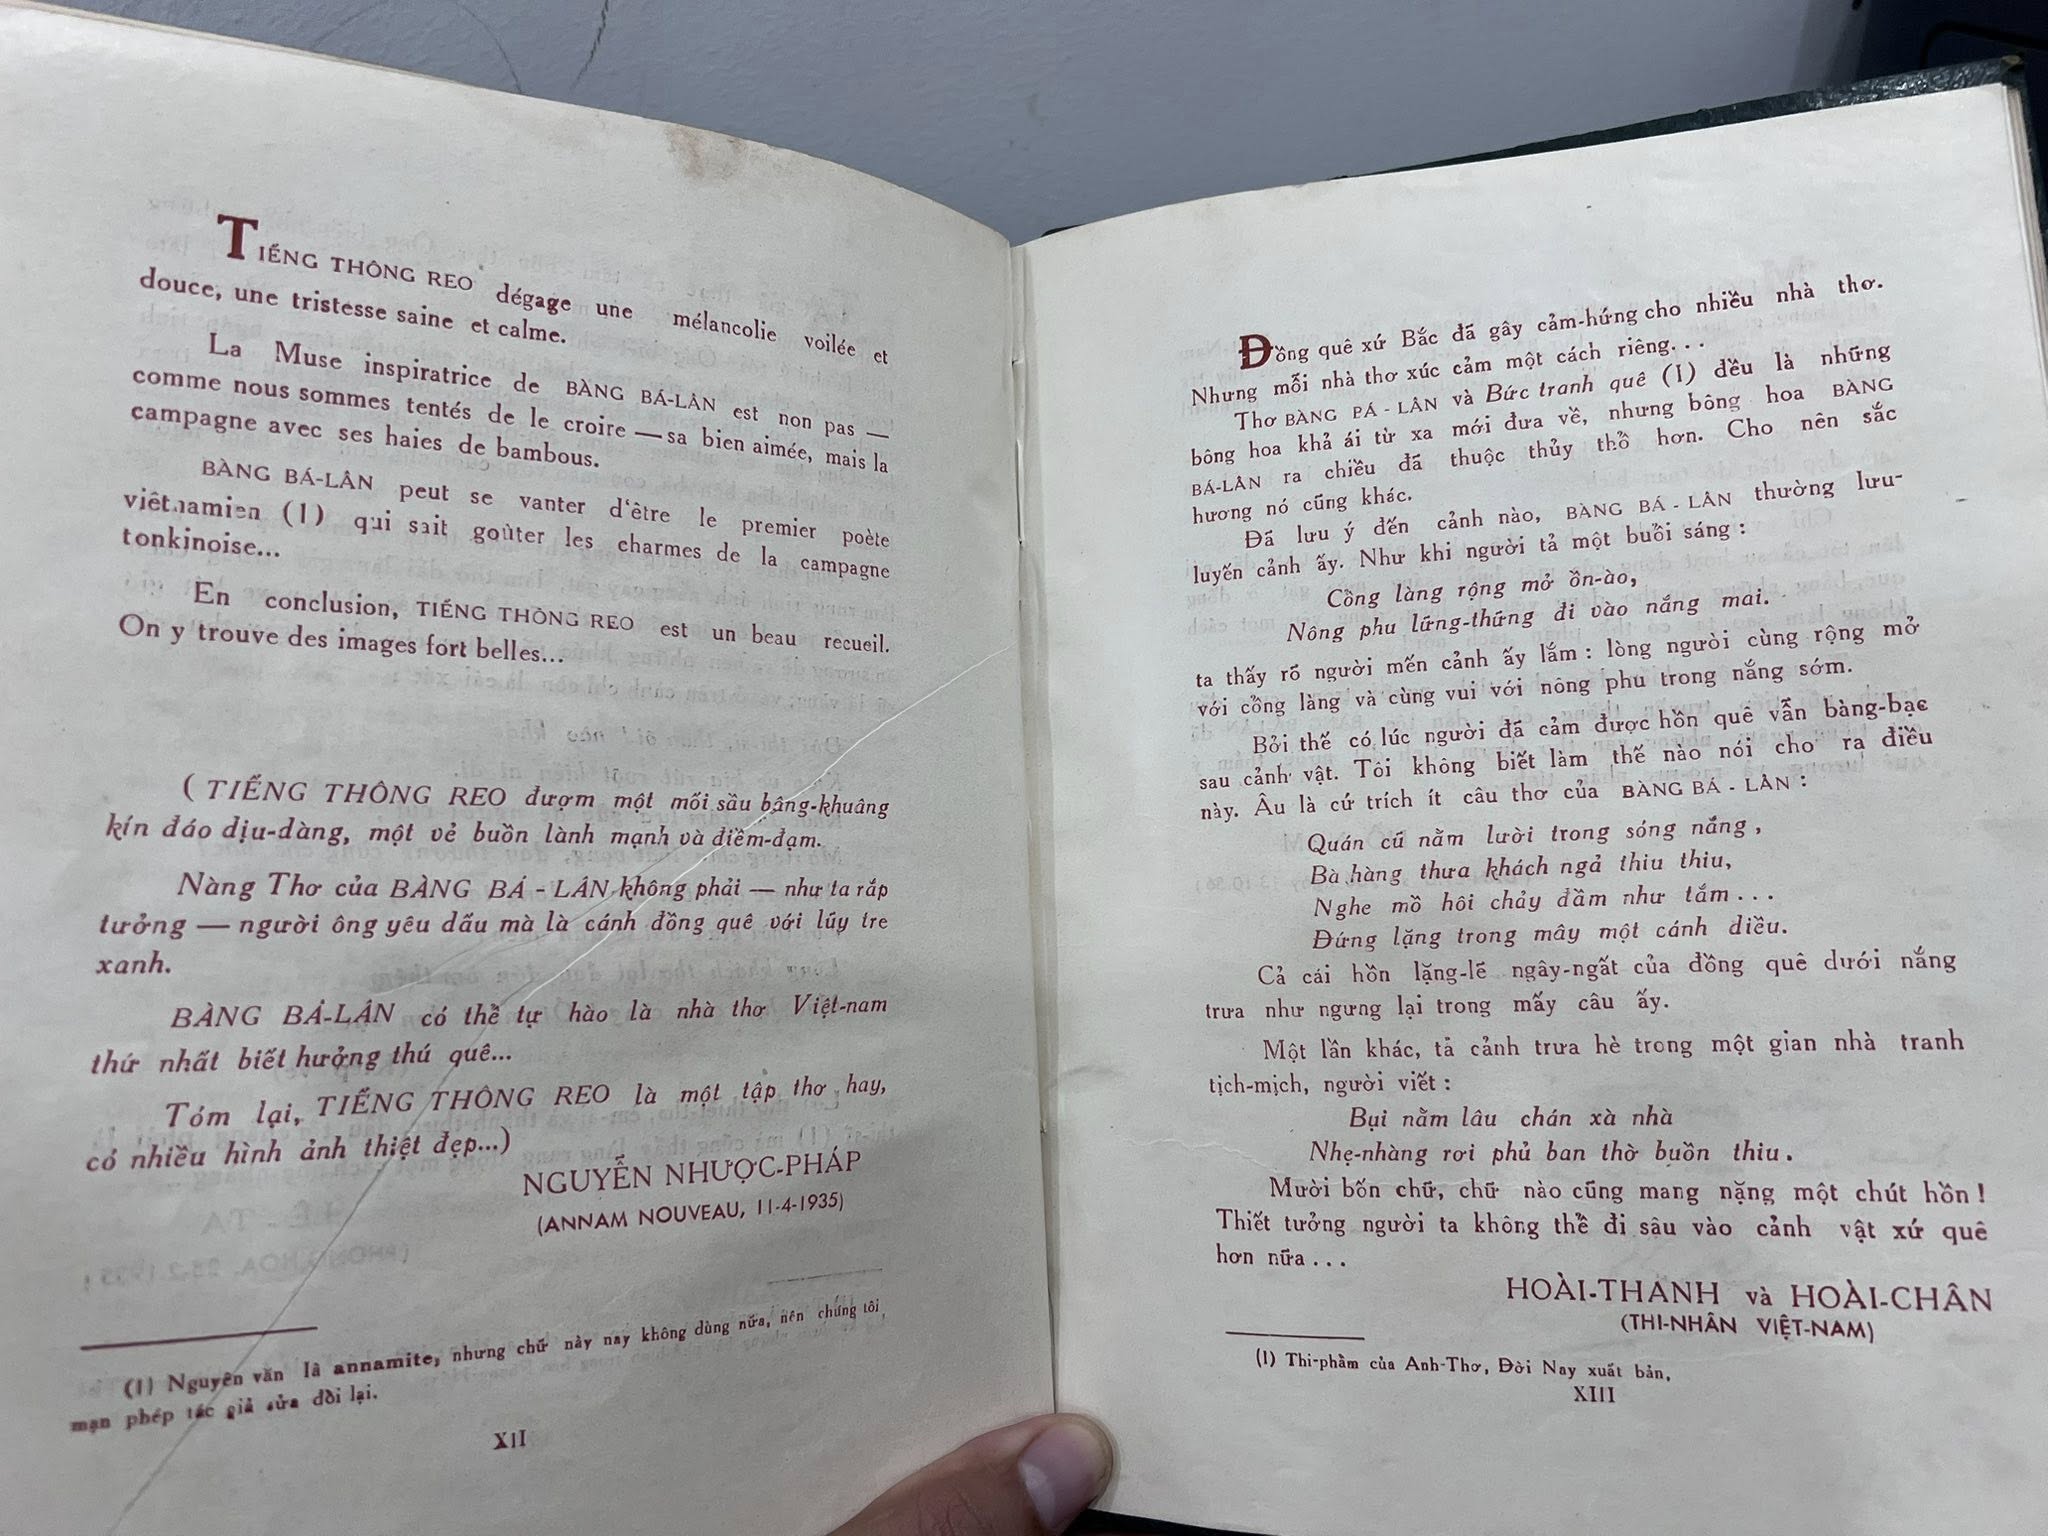 TIẾNG THÔNG REO dégage une mélancolie voilée et
douce, une tristesse saine et calme.
La Muse inspiratrice de BÀNG BÁ-LÂN est non pas —
comme nous sommes tentés de le croire — sa bien aimée, mais la
campagne avec ses haies de bambous.
BÀNG BÁ-LÂN peut se vanter d'être le premier poète
viêtnamien (1) qui sait goùter les charmes de la campagne
tonkinoise...
En conclusion, TIẾNG THÔNG REO est un beau recueil.
On y trouve des images fort belles...
( TIẾNG THÔNG REO đượm một mối sầu bâng-khuâng
kín đáo dịu-dàng, một vẻ buồn lành mạnh và điềm-đạm.
Nàng Thơ của BÀNG BÁ - LÂN không phải — như ta rắp
tưởng — người ông yêu dấu mà là cánh đồng quê với lũy tre
xanh.
BÀNG BÁ-LÂN có thể tự hào là nhà thơ Việt-nam
thứ nhất biết hưởng thú quê...
Tóm lại, TIẾNG THÔNG REO là một tập thơ hay,
có nhiều hình ảnh thiệt đẹp...)
NGUYỄN NHƯỢC-PHÁP
(ANNAM NOUVEAU, 11-4-1935)
(1) Nguyên văn là annamite, nhưng chữ này nay không dùng nữa, nên chúng tôi
mạn phép tác giả sửa đổi lại.
XII
Đồng quê xứ Bắc đã gây cảm-hứng cho nhiều nhà thơ.
Nhưng mỗi nhà thơ xúc cảm một cách riêng...
Thơ BÀNG BÁ - LÂN và Bức tranh quê (1) đều là những
bông hoa khả ái từ xa mới đưa về, nhưng bông hoa BÀNG
BÁ-LÂN ra chiều đã thuộc thủy thổ hơn. Cho nên sắc
hương nó cũng khác.
Đã lưu ý đến cảnh nào, BÀNG BÁ - LÂN thường lưu-
luyến cảnh ấy. Như khi người tả một buổi sáng :
Cồng làng rộng mở ồn-ào,
Nông phu lững-thững đi vào nắng mai.
ta thấy rõ người mến cảnh ấy lắm : lòng người cùng rộng mở
với cổng làng và cùng vui với nông phu trong nắng sớm.
Bởi thế có lúc người đã cảm được hồn quê vẫn bàng-bạc
sau cảnh vật. Tôi không biết làm thế nào nói cho ra điều
này. Âu là cứ trích ít câu thơ của BÀNG BÁ - LÂN :
Quán cũ nằm lười trong sóng nắng,
Bà hàng thưa khách ngả thiu thiu,
Nghe mồ hôi chảy đầm như tắm...
Đứng lặng trong mây một cánh diều.
Cả cái hồn lặng-lẽ ngây-ngất của đồng quê dưới nắng
trưa như ngưng lại trong mấy câu ấy.
Một lần khác, tả cảnh trưa hè trong một gian nhà tranh
tịch-mịch, người viết :
Bụi nằm lâu chán xà nhà
Nhẹ-nhàng rơi phủ ban thờ buồn thiu.
Mười bốn chữ, chữ nào cũng mang nặng một chút hồn !
Thiết tưởng người ta không thể đi sâu vào cảnh vật xứ quê
hơn nữa...
HOÀI-THANH và HOÀI-CHÂN
(THI-NHÂN VIỆT-NAM)
(1) Thi-phẩm của Anh-Thơ, Đời Nay xuất bản,
XIII